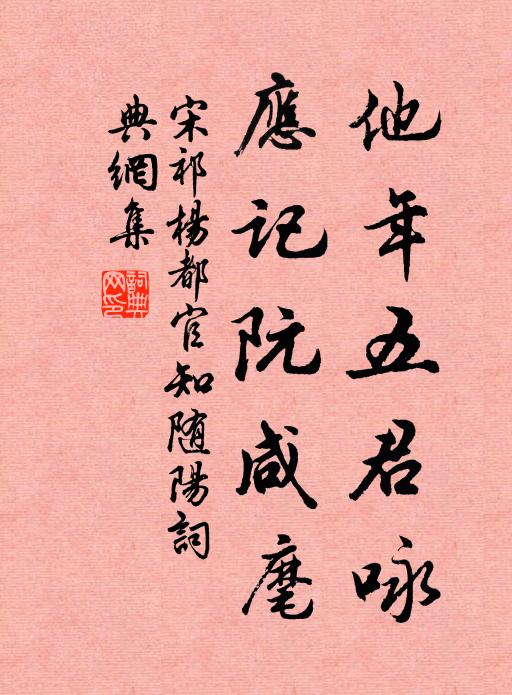 他年五君咏
應記阮咸麾
宋祁楊都官知随陽詞
典網集
詞典
网印